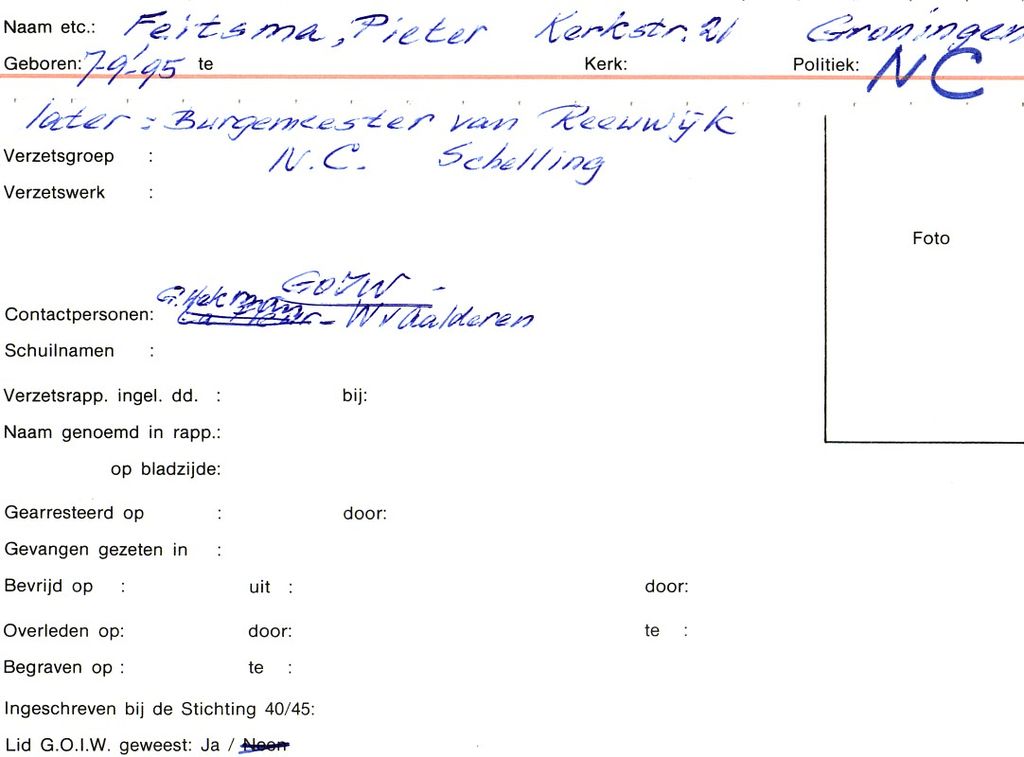 Naam etc.: Feitsma, Pieter Kerkstr. 21 Groningen
Geboren: 7-9-'95 te Kerk: Politiek: NC
later: Burgemeester van Reeuwijk
Verzetsgroep : N.C. Schelling
Verzetswerk :
Foto
GOIW -
Contactpersonen: G. Hekman - W v Aalderen
Schuilnamen :
Verzetsrapp. ingel. dd. : bij:
Naam genoemd in rapp.:
op bladzijde:
Gearresteerd op : door:
Gevangen gezeten in :
Bevrijd op : uit : door:
Overleden op: door: te :
Begraven op : te :
Ingeschreven bij de Stichting 40/45:
Lid G.O.I.W. geweest: Ja / Neen